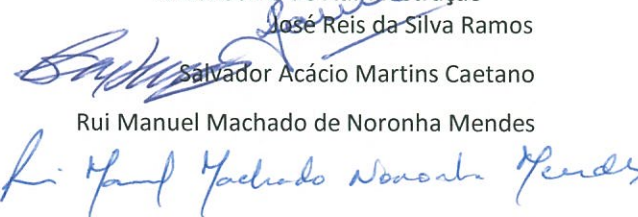 José Reis da Silva Ramos
Salvador Acácio Martins Caetano
Rui Manuel Machado de Noronha Mendes
Rui Manuel Machado Noronha Mendes